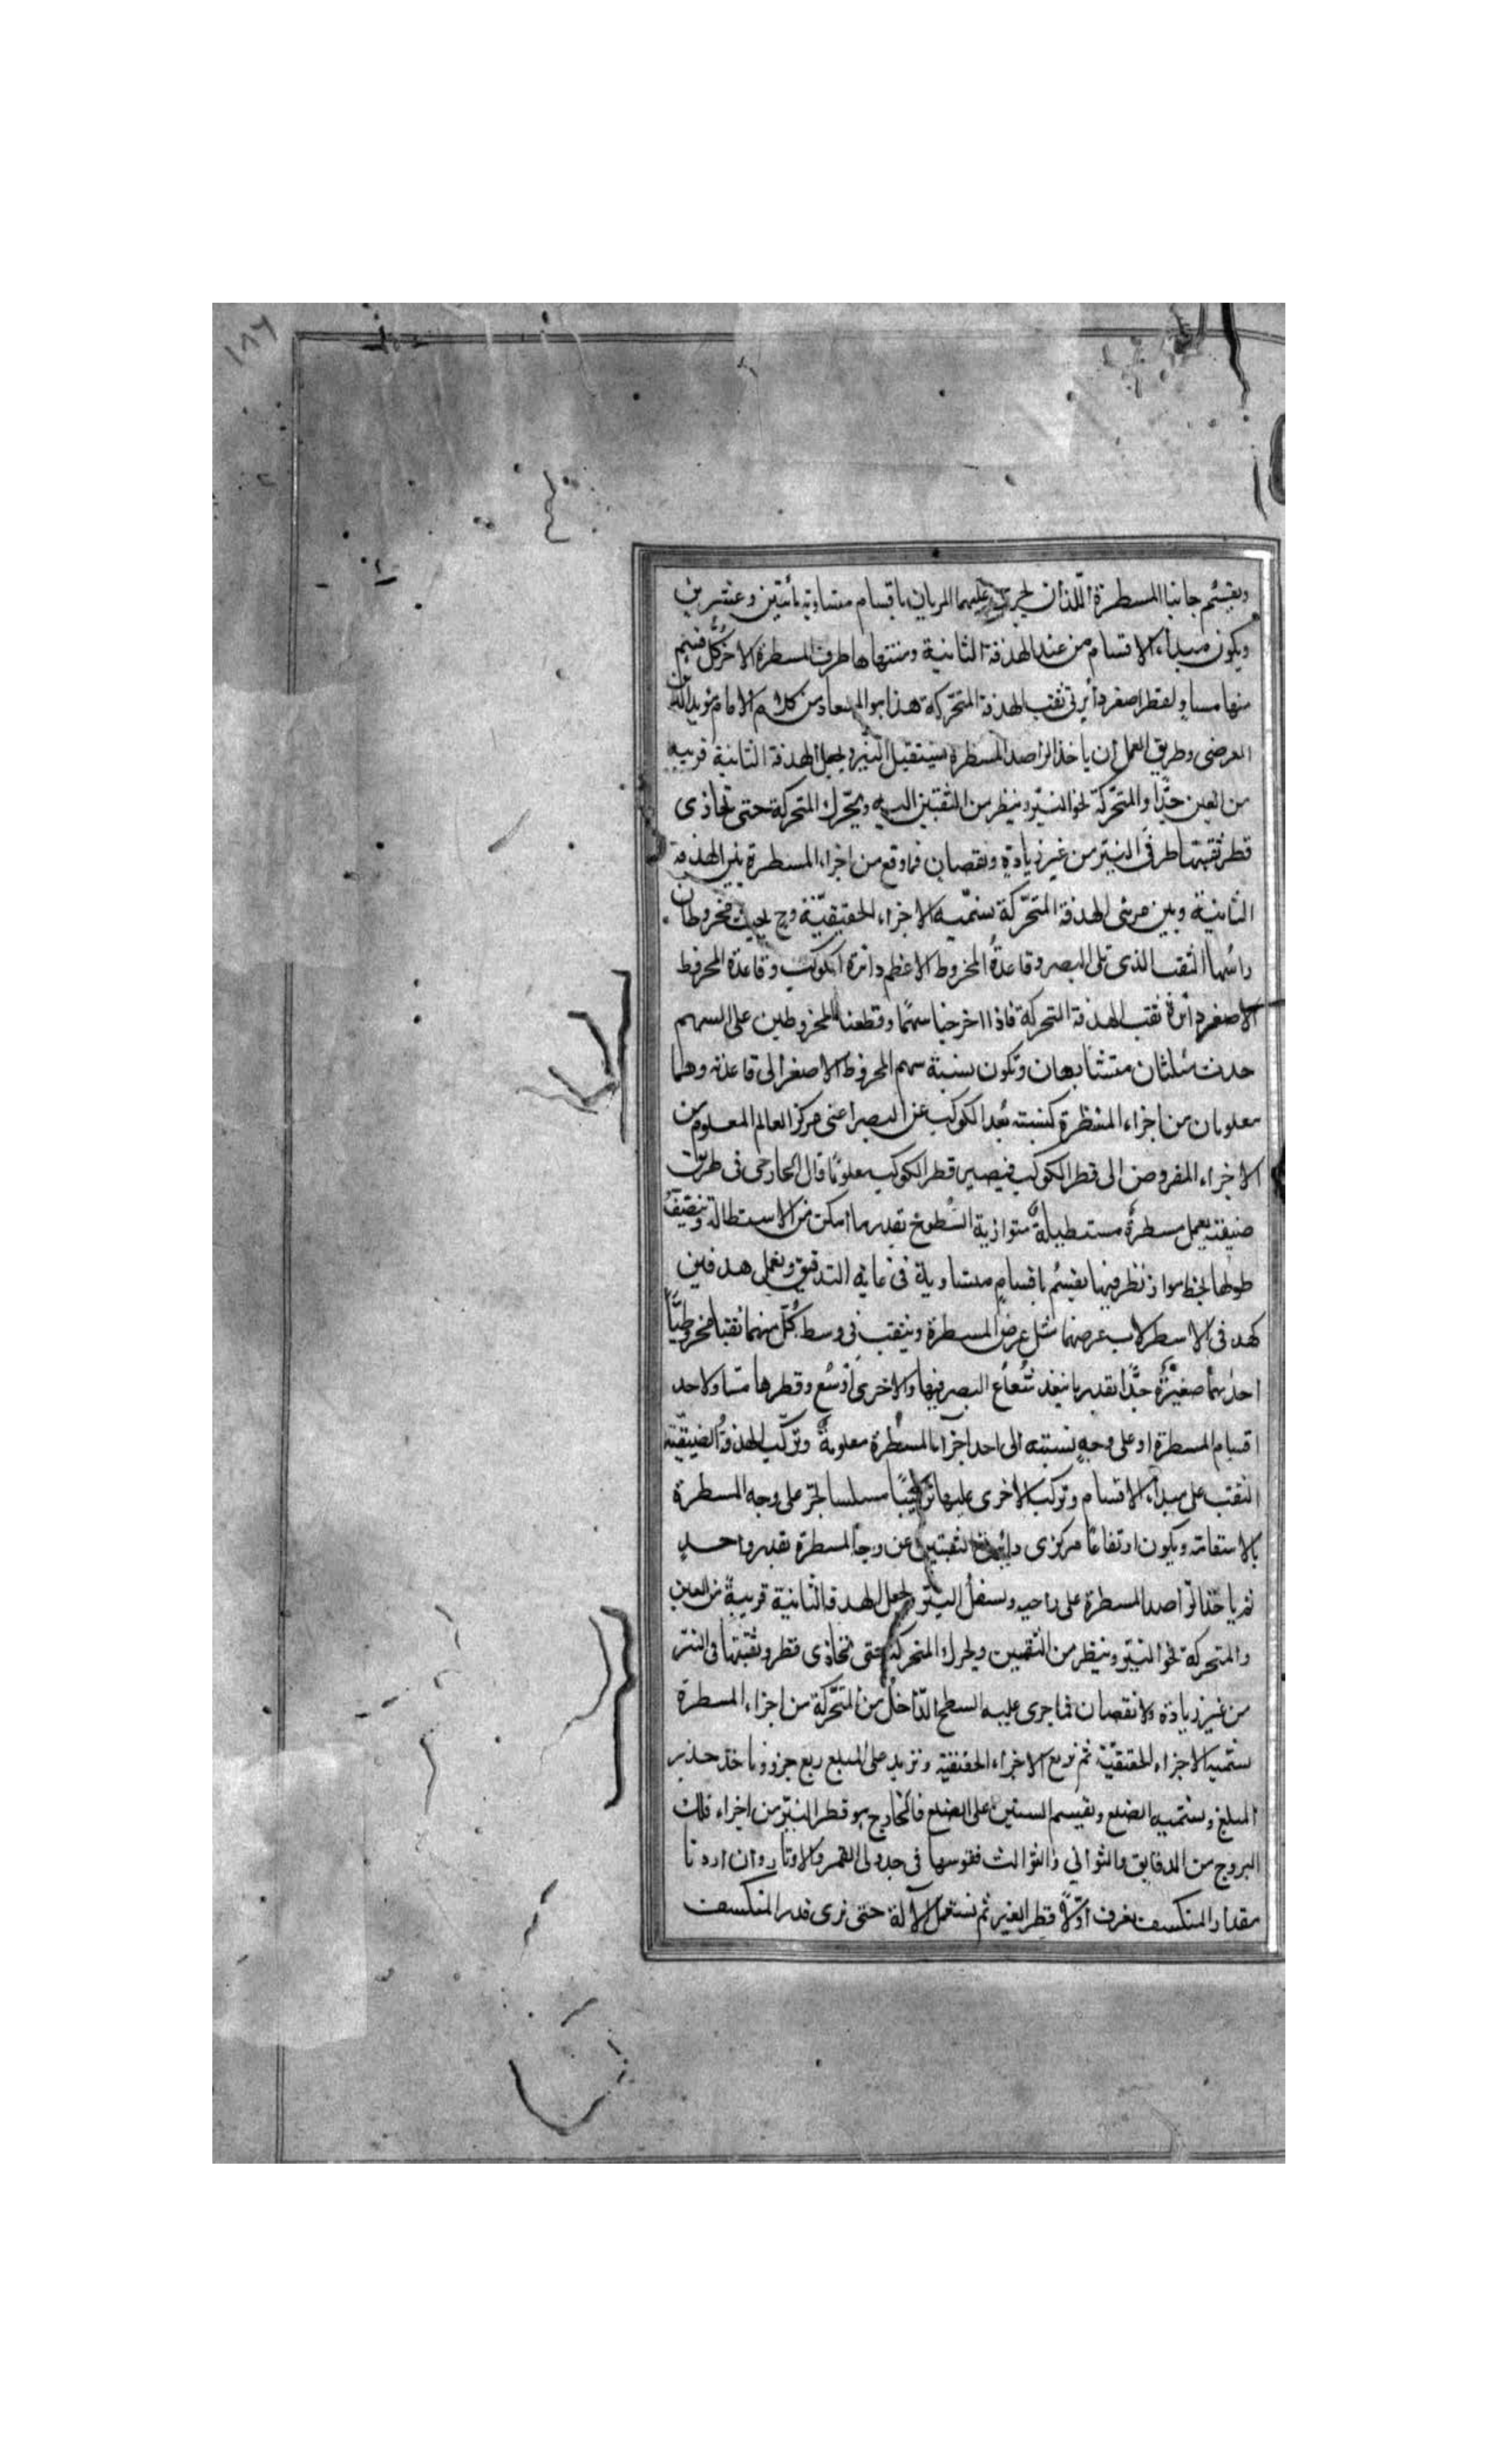 ١٨٦
ويقسم جانبا المسطرة اللذان يجرى عليهما المريان باقسام متساوية مأتين وعشرين
ويكون مبدأ الاقسام من عند الهدفة الثانية ومنتهاها طرف المسطرة الاخر وكل قسم
منها مساوٍ لقطر اصغر دأيرتى ثقب الهدفة المتحركة هذا هو المستعاد من كلام الامام مؤيد الدين
العرضى وطريق العمل ان ياخذ الراصد المسطرة يستقبل النيّر ويجعل الهدفة الثانية قريبه
من العين جدّا والمتحرّكة نحو النيّر وينظر من الثقبتين اليه ويحرّك المتحركة حتى تحاذى
قطر ثقبتها طرفى النيّر من غير زيادةٍ ونقصان فما وقع من اجزاء المسطرة بين الهدفة
الثانية وبين مرئى الهدفة المتحرّكة نسمّيه الاجزاء الحقيقيّة وح يحدث مخروطان
رائسهما الثقب الذى تلى البصر وقاعدة المخروط الاعظم دائرة الكوكب وقاعدة المخروط
الاصغر دأئرة ثقب الهدفة المتحركة فاذا اخرجنا سهمًا وقطعنا المخروطين على السهم
حدث مثلثان متشابهان وتكون نسبة سهم المخروط الاصغر الى قاعدته وهما
معلومان من اجزاء المسطرة كنسبته بُعد الكوكب عن البصر اعنى مركز العالم المعلوم من
الاجزاء المفروض الى قطر الكوكب فيصير قطر الكوكب معلومًا قال الخازمى فى طريق
صنيعته يعمل مسطرة مستطيلة متوازية السّطوح بقدر ما امكن من الاستطالة وينصّف
طولها بخط مواز لطرفيها يقسم باقسامٍ متساوية فى غاية التدقيق ويعمل هدفتين
كهدفى الاسطرلاب عرضهما مثل عرض المسطرة ويثقب فى وسط كلّ منهما ثقبا مخروطيًّا
احدٰيهما صغيرة جدًّا بقدر ما ينفذ شعاع البصر فيها والاخرى أوسع وقطرها مساو لاحد
اقسام المسطرة او على وجهٍ نسبته الى احد اجزآء المسطرة معلومة وتركّب الهدفة الضيّقة
الثقب على مبدأ الاقسام وتركب الاخرى عليها تركيبًا مسلسا لتجرّ على وجه المسطرة
بالاستقامة ويكون ارتفاعًا مركزى دايرتى الثقبتين عن وجه المسطرة بقدر واحدٍ
ثم ياخذ الراصد المسطرة على راحيه ويستقبل النيّر ويجعل الهدفة الثانية قريبةً من العين
والمتحركة نحو النيّر وينظر من الثقبتين ويحرك المتحركة حتى تحاذى قطر وثقبتها فى النيّر
من غير زيادة ولا نقصان فما جرى عليه السطح الدّاخل من المتحّركة من اجزاء المسطرة
نسّميه الاجزاء الحقيقيّة ثم نربع الاجزاء الحقيقية ونزيد على المبلع ربع جزو وناخذ جذر
المبلغ ونسّميه الضلع ونقسم الستين على الضلع فالخارج هو قطر النيّر من اجزاء فلك
البروج من الدقايق والثوانى والثوالث فقوسها فى جدولى القمر والاوتار وان اردنا
مقدار المنكسف نعرف أوّلاً قطر النيّر ثم نستعمل الآلة حتى نرى قدر المنكسف